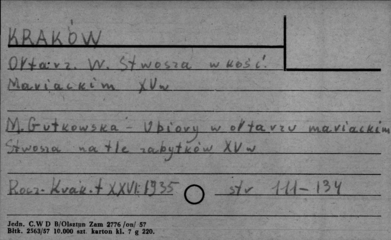 KRAKÓW
Ołtarz. W. Stwosza w kość.
Mariackim XVw
M. Gutkowska - Ubiory w ołtarzu mariackim
Stwosza na tle zabytków XVw
Rocz. Krak. t XXVI. 1935 str 111-134
Jedn. C.W D B/Olsztyn Zam 2776 /on/ 57
Bltk. 2563/57 10.000 szt. karton kl. 7 g 220.